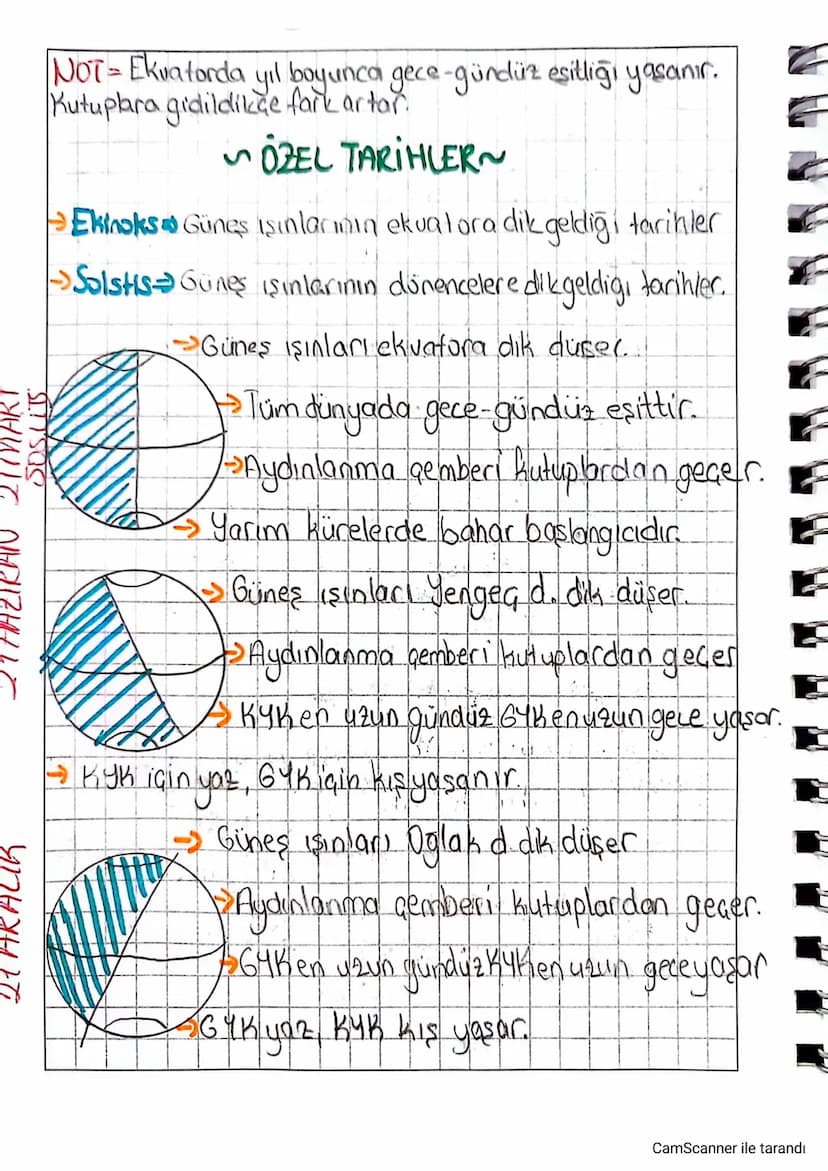 NOT= Ekvatorda yıl boyunca gece-gündüz eşitliği yaşanır.
Kutuplara gidildikçe fark artar.
~ ÖZEL TARİHLER ~
→ Ekinoks ⇒ Güneş ışınlarının ekvatora dik geldiği tarihler
→ Solstis ⇒ Güneş ışınlarının dönencelere dik geldiği tarihler.
21 MART
→ Güneş ışınları ekvatora dik düşer.
→ Tüm dünyada gece-gündüz eşittir.
→ Aydınlanma çemberi kutuplardan geçer.
→ Yarım kürelerde bahar başlangıcıdır.
21 HAZİRAN
→ Güneş ışınları Yengeç d. dik düşer.
→ Aydınlanma çemberi kutuplardan geçer
→ KYK en uzun gündüz GYK en uzun gece yaşar.
→ KYK için yaz, GYK için kış yaşanır.
21 ARALIK
→ Güneş ışınları Oğlak d. dik düşer
→ Aydınlanma çemberi kutuplardan geçer.
→ GYK en uzun gündüz KYK en uzun gece yaşar
→ GYK yaz, KYK kış yaşar.
CamScanner ile tarandı